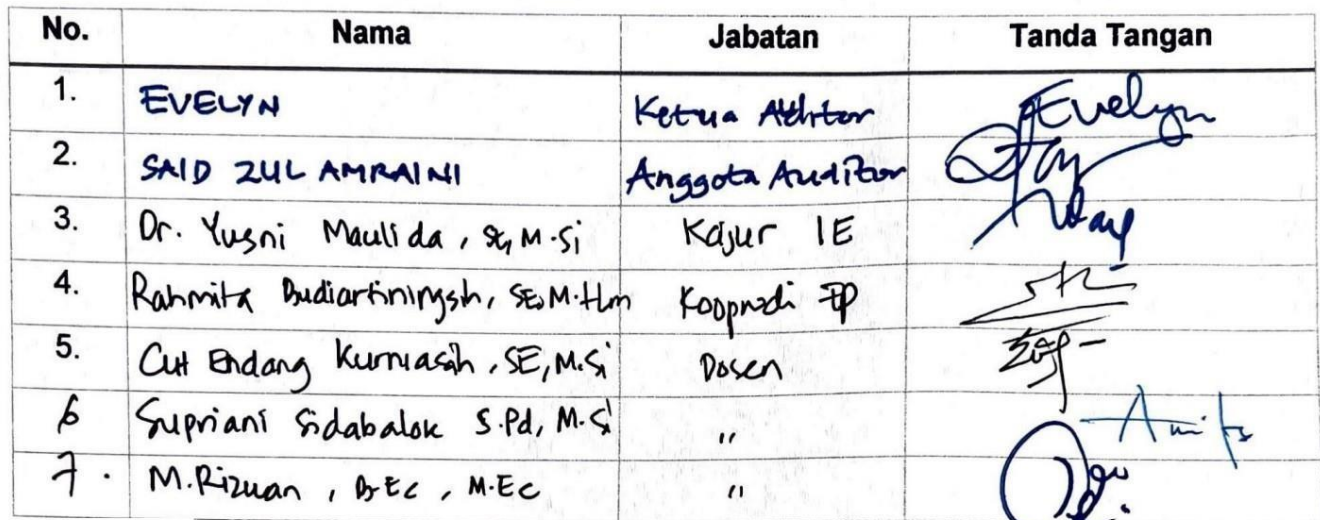 No. Nama Jabatan Tanda Tangan
1. EVELYN Ketua Auditor Evelyn
2. SAID ZUL AMRAINI Anggota Auditor
3. Dr. Yusni Maulida, SE, M.Si Kajur IE
4. Rahmita Budiartiningsih, SE, M.Hum Kooprodi EP
5. Cut Endang Kurniasih, SE, M.Si Dosen
6 Supriani Sidabalok S.Pd, M.Si "
7. M.Rizuan, B.Ec, M.Ec "